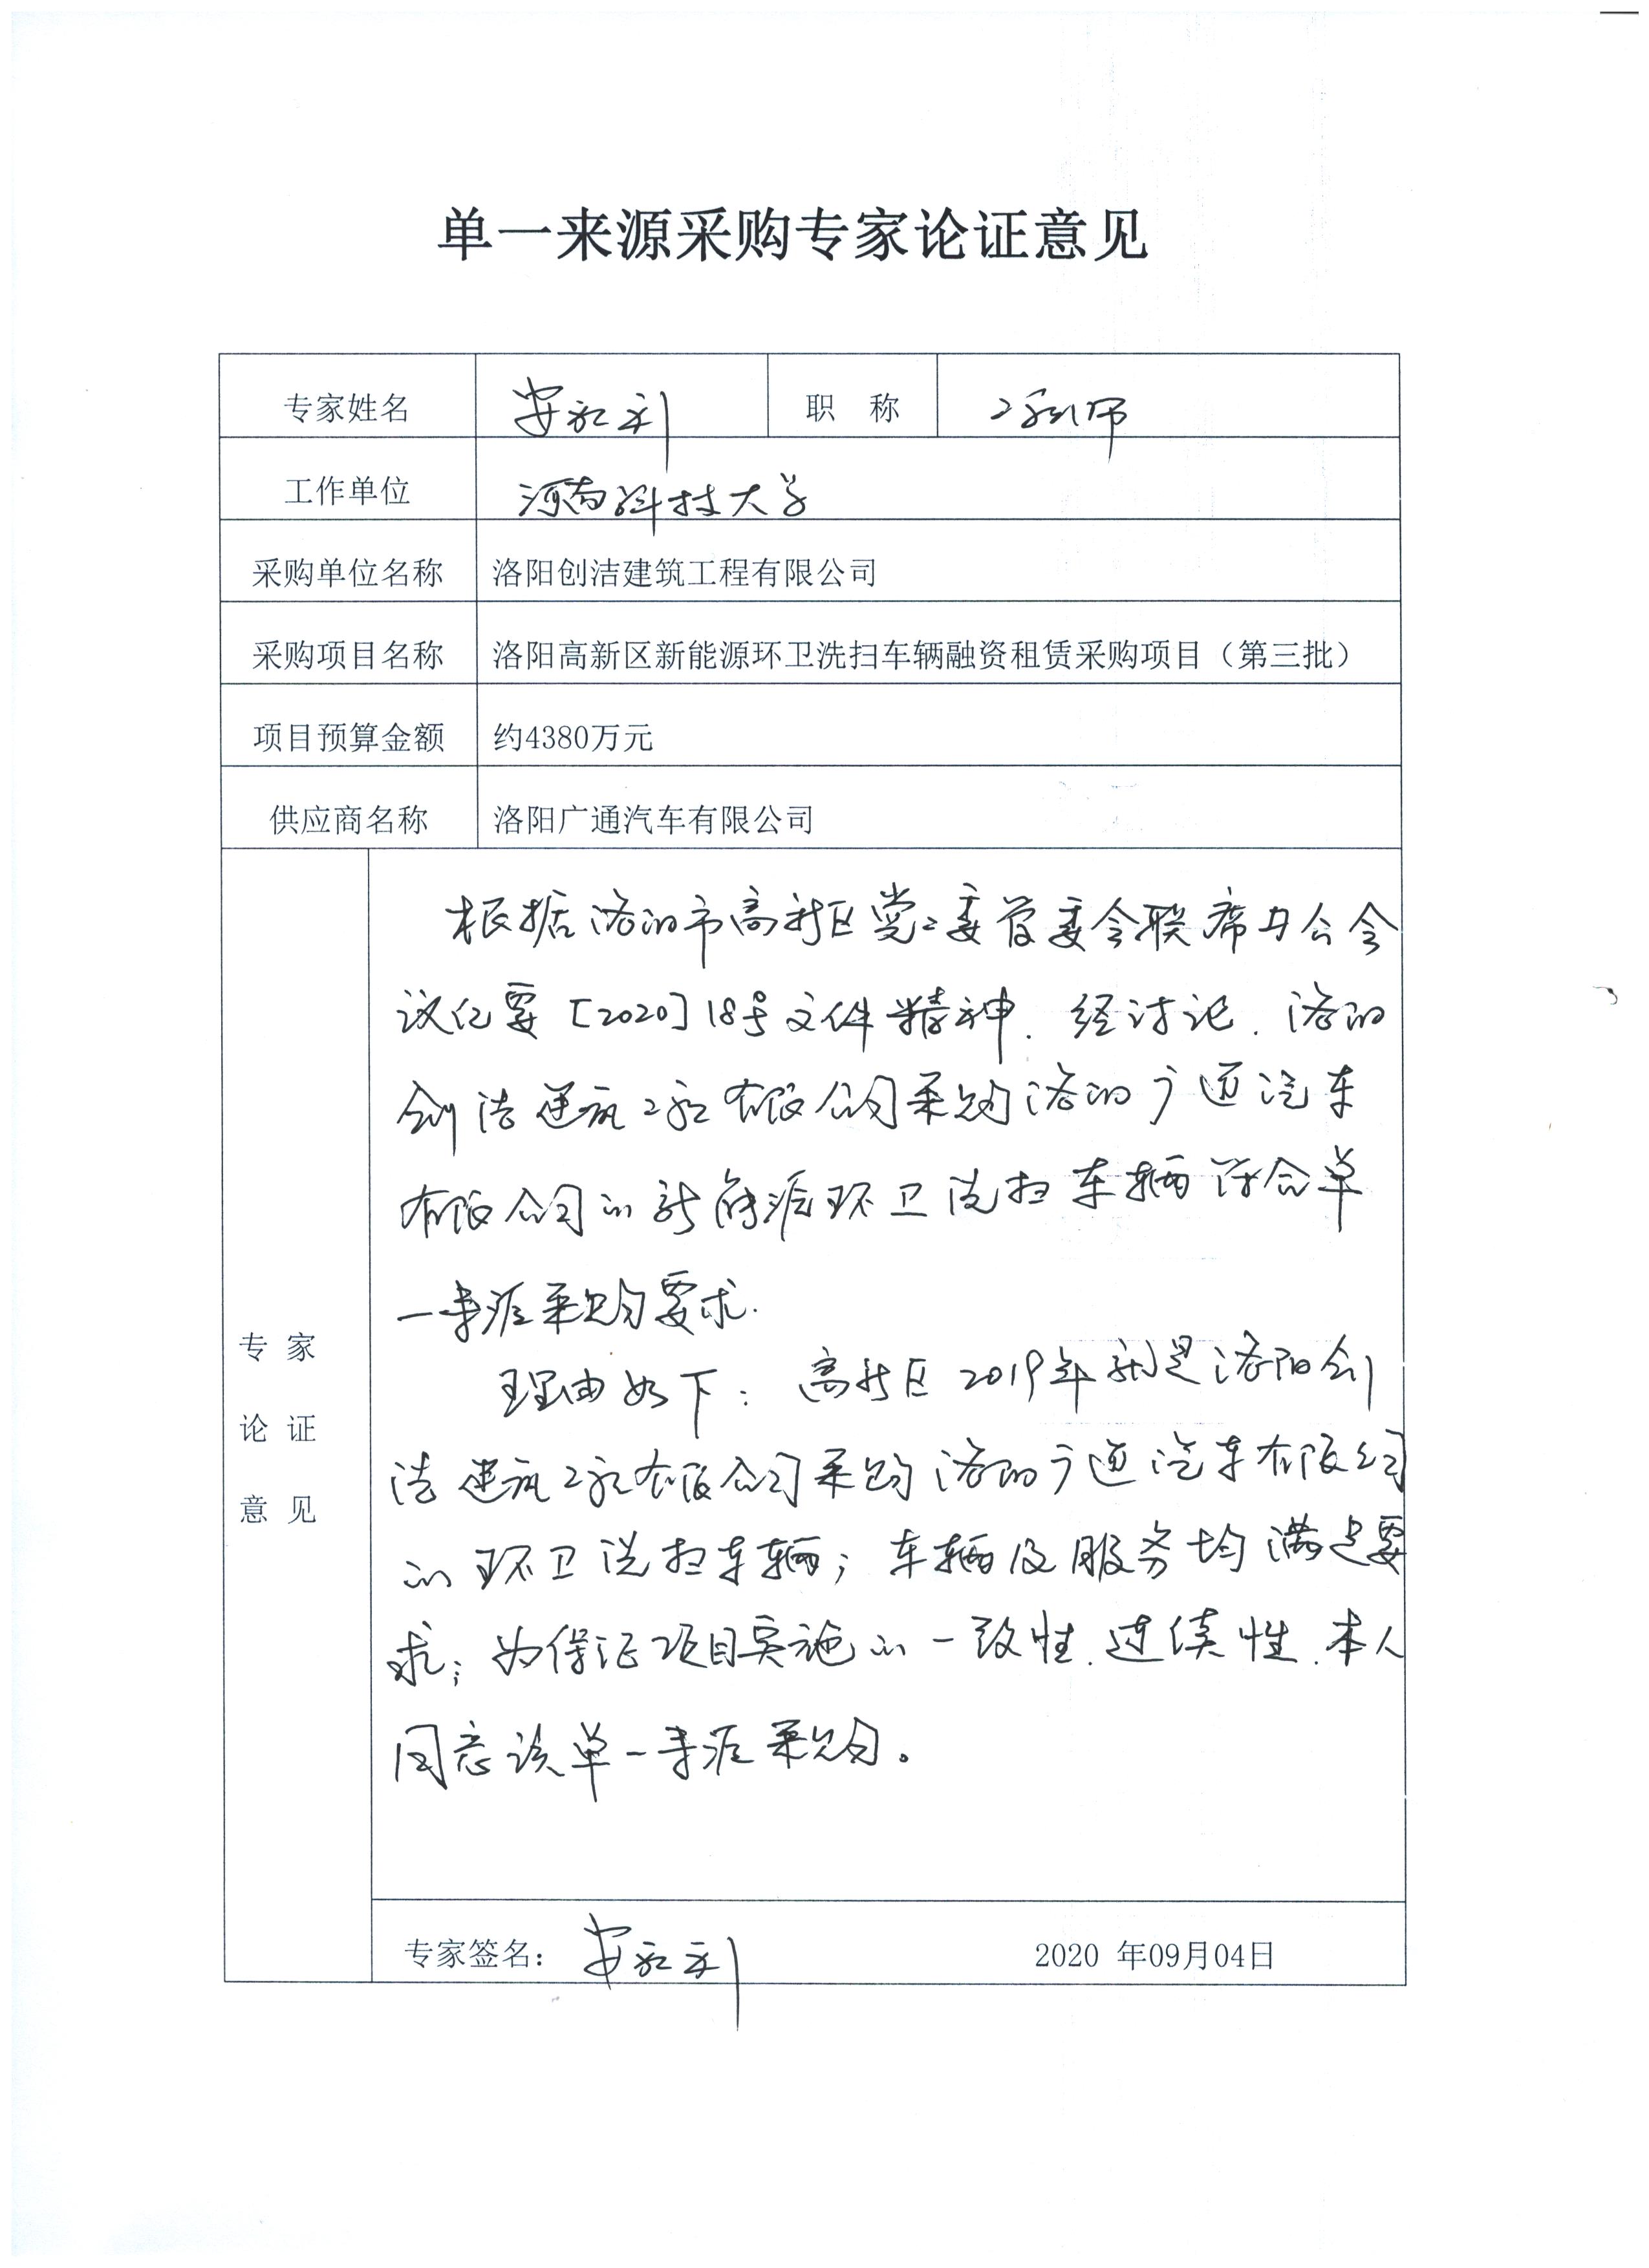 单一来源采购专家论证意见
专家姓名 安永利 职 称 工程师
工作单位 河南科技大学
采购单位名称 洛阳创洁建筑工程有限公司
采购项目名称 洛阳高新区新能源环卫洗扫车辆融资租赁采购项目（第三批）
项目预算金额 约4380万元
供应商名称 洛阳广通汽车有限公司
专 家
论 证
意 见
根据洛阳市高新区党工委管委会联席办公会
议纪要[2020]18号文件精神.经讨论.洛阳
创洁建筑工程有限公司采购洛阳广通汽车
有限公司的新能源环卫洗扫车辆符合单
一来源采购要求.
理由如下：高新区2019年就是洛阳创
洁建筑工程有限公司采购洛阳广通汽车有限公司
的环卫洗扫车辆；车辆及服务均满足要
求；为保证项目实施的一致性.连续性.本人
同意该单一来源采购。
专家签名：安永利 2020 年09月04日